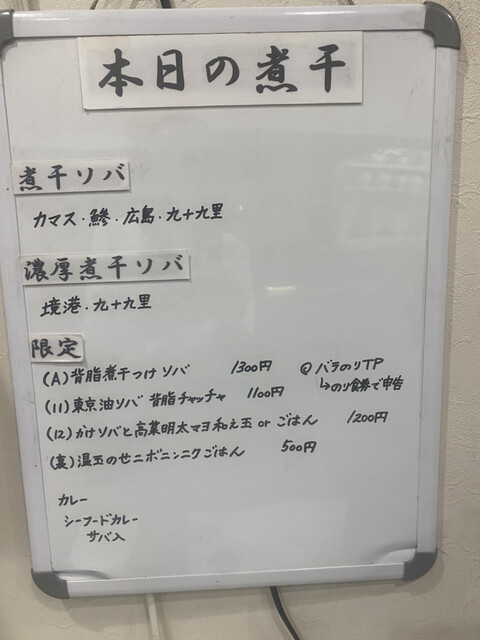 本日の煮干
煮干ソバ
カマス・鯵・広島・九十九里
濃厚煮干ソバ
境港・九十九里
限定
(A)背脂煮干つけソバ 1300円
◎バラのりTP
↳のり食券で申告
(11)東京油ソバ 背脂チャッチャ 1100円
(12)かけソバと高菜明太マヨ和え玉 or ごはん 1200円
(裏)温玉のせニボニンニクごはん 500円
カレー
シーフードカレー
サバ入